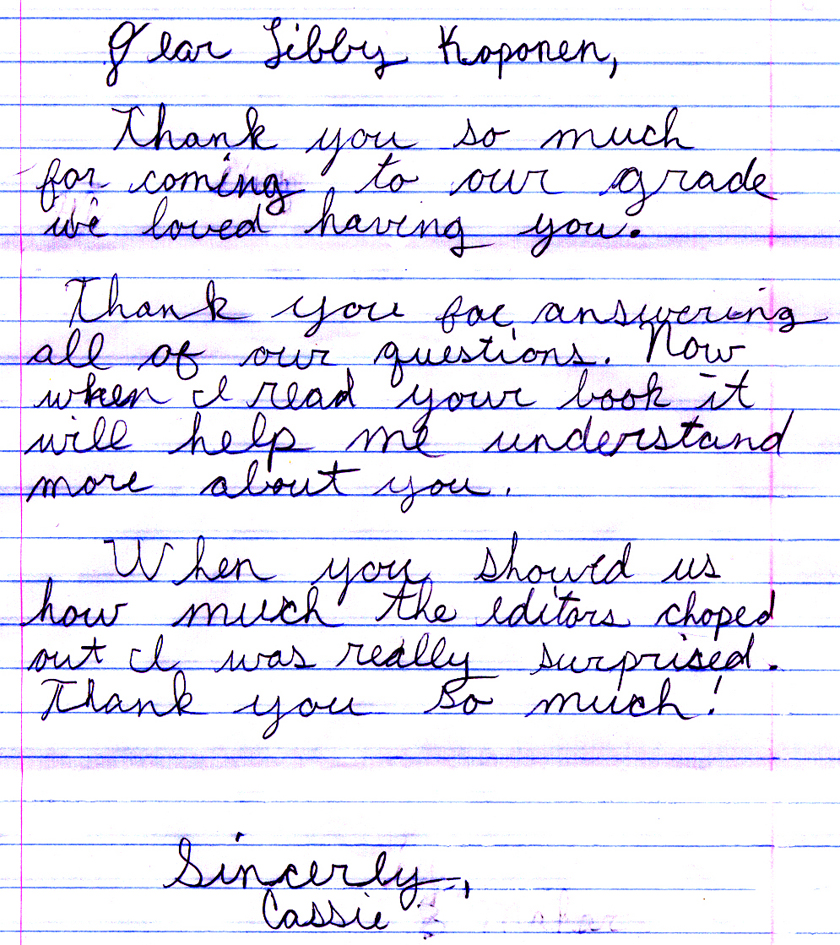 Dear Libby Koponen,
Thank you so much
for coming to our grade
we loved having you.
Thank you for answering
all of our questions. Now
when I read your book it
will help me understand
more about you.
When you showed us
how much the editors choped
out I was really surprised.
Thank you so much!
Sincerly,
Cassie